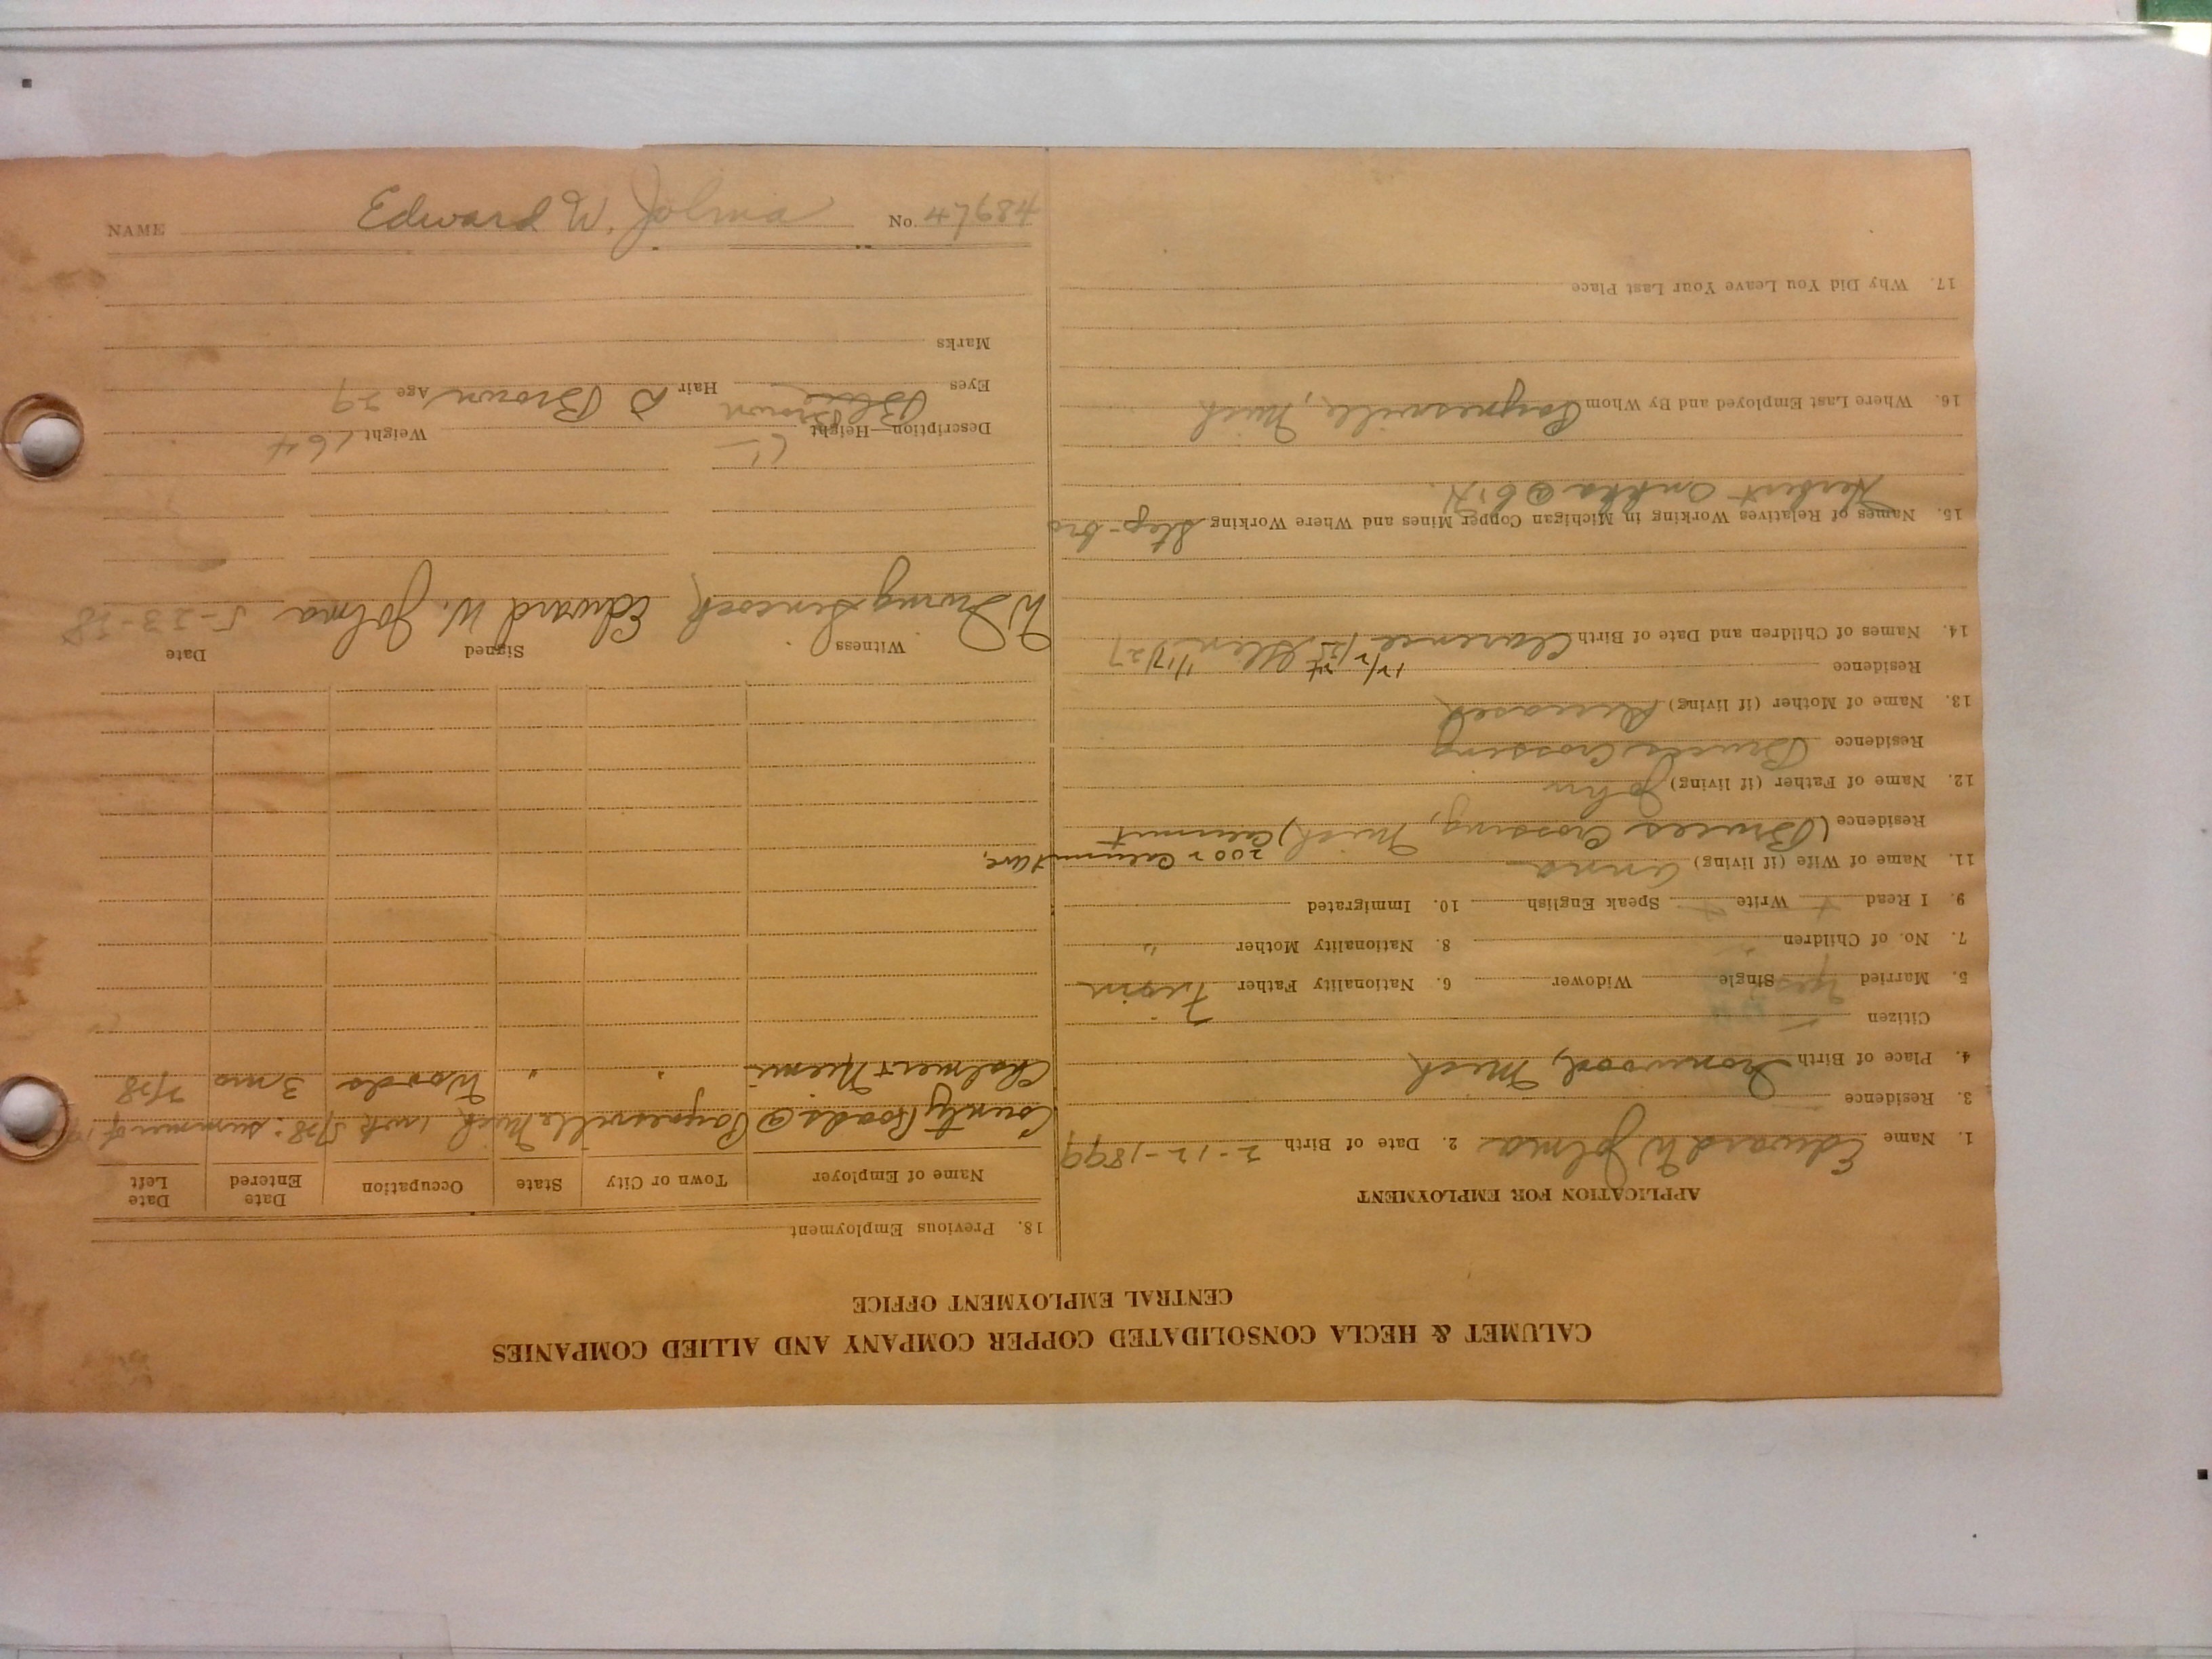 CALUMET & HECLA CONSOLIDATED COPPER COMPANY AND ALLIED COMPANIES
CENTRAL EMPLOYMENT OFFICE
APPLICATION FOR EMPLOYMENT
1. Name Edward W Jolma 2. Date of Birth 2-12-1899
3. Residence
4. Place of Birth Ironwood, Mich
Citizen
5. Married Yes Single Widower 6. Nationality Father Finn
7. No. of Children 8. Nationality Mother "
9. I Read + Write + Speak English 10. Immigrated
11. Name of Wife (if living) Anna 2002 Calumet Ave,
Residence (Bruces Crossing, Mich) Calumet
12. Name of Father (if living) John
Residence Bruces Crossing
13. Name of Mother (if living) Deceased
Residence
14. Names of Children and Date of Birth Clarence Glen 1/17/27
15. Names of Relatives Working in Michigan Copper Mines and Where Working Step-bro
Herbert
16. Where Last Employed and By Whom Paynesville, Mich
17. Why Did You Leave Your Last Place
18. Previous Employment
Name of Employer Town or City State Occupation Date Entered Date Left
County Roads @ Paynesville Mich 1 wk 5/28: summer of
Chalmer + Niemi " " Woods 3 mo
Witness Signed Date
W Irving Sincock Edward W. Jolma 5-23-28
Description—Height Weight 164
Eyes Blue Brown Hair D Brown Age 29
Marks
NAME Edward W. Jolma No. 47684